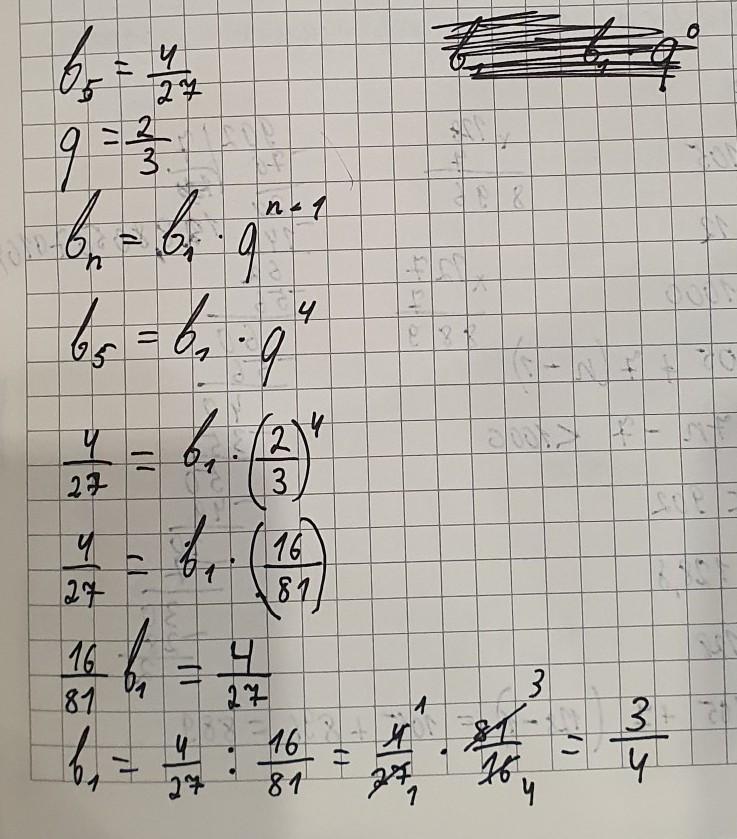 b₅ = 4/27
q = 2/3
bₙ = b₁ · qⁿ⁻¹
b₅ = b₁ · q⁴
4/27 = b₁ · (2/3)⁴
4/27 = b₁ · (16/81)
16/81 b₁ = 4/27
b₁ = 4/27 : 16/81 = 4/27 · 81/16 = 3/4